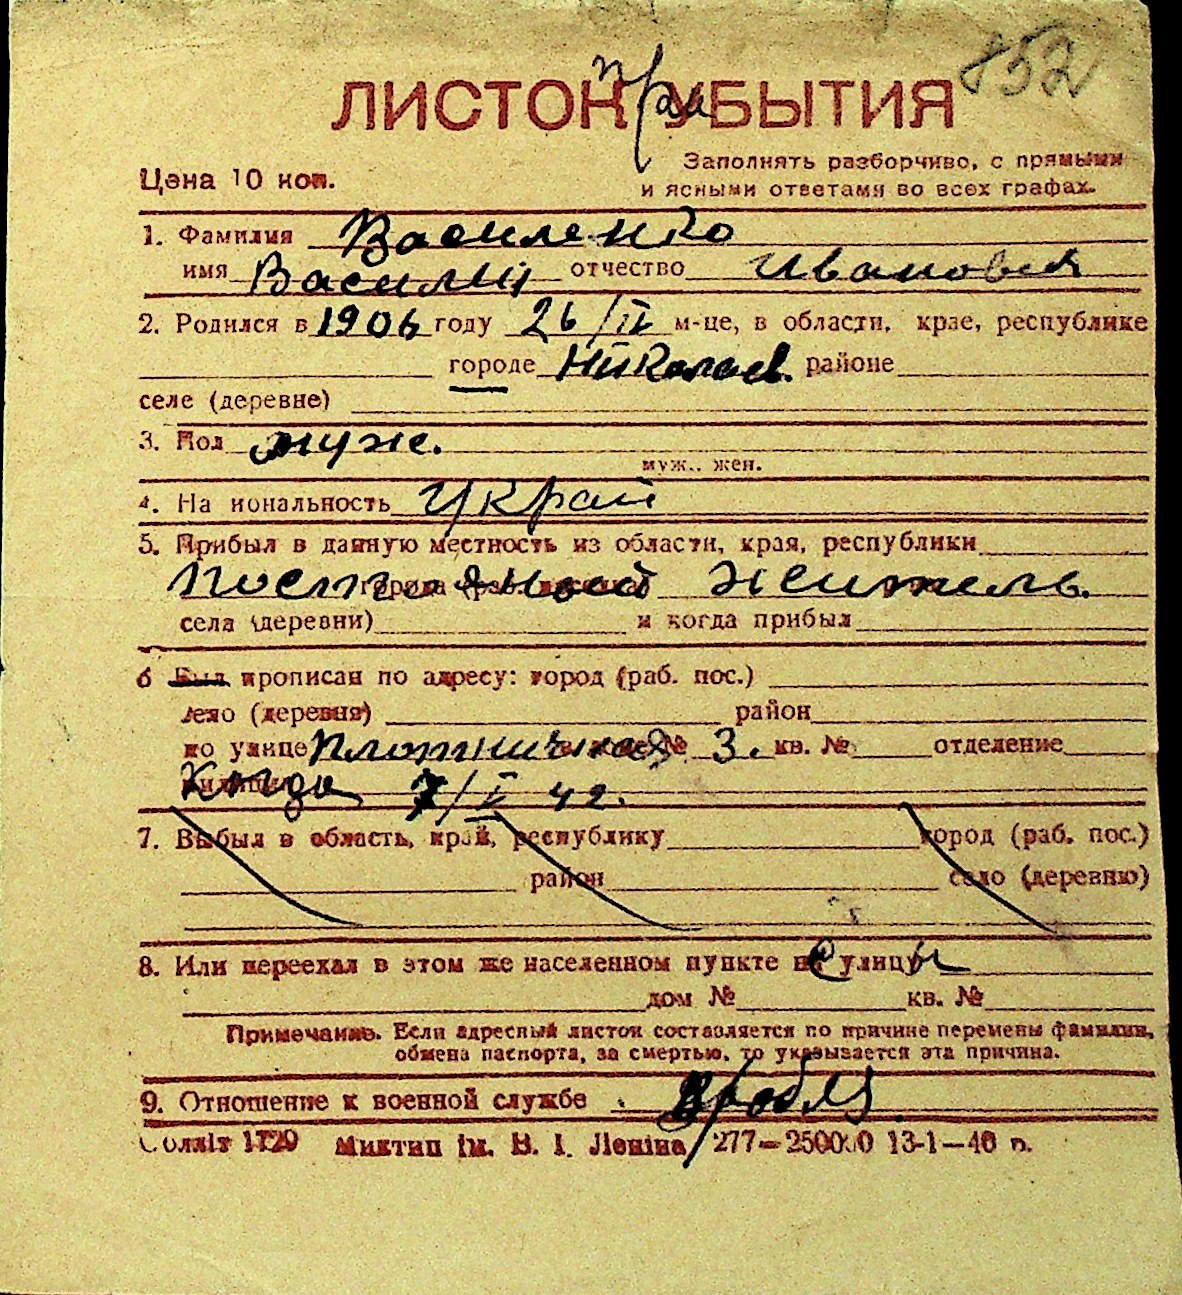 852
ЛИСТОК при УБЫТИЯ
Цена 10 коп.
Заполнять разборчиво, с прямыми
и ясными ответами во всех графах.
1. Фамилия Василенко
имя Василий отчество Иванович
2. Родился в 1906 году 26/II м-це, в области, крае, республике
городе Николаев. районе
селе (деревне)
3. Пол муж.
муж., жен.
4. На иональность Украй
5. Прибыл в данную местность из области, края, республики
постоянный житель.
села (деревни) и когда прибыл
6 Был прописан по адресу: город (раб. пос.)
село (деревня) район
по улице Плотничная № 3. кв. № отделение
7/I 42.
7. Выбыл в область, край, республику город (раб. пос.)
район село (деревню)
8. Или переехал в этом же населенном пункте улицы
дом № кв. №
Примечание. Если адресный листок составляется по причине перемены фамилии,
обмена паспорта, за смертью, то указывается эта причина.
9. Отношение к военной службе
Облліт 1129 Миктип ім. В. І. Леніна 277—250000 13-1—40 р.